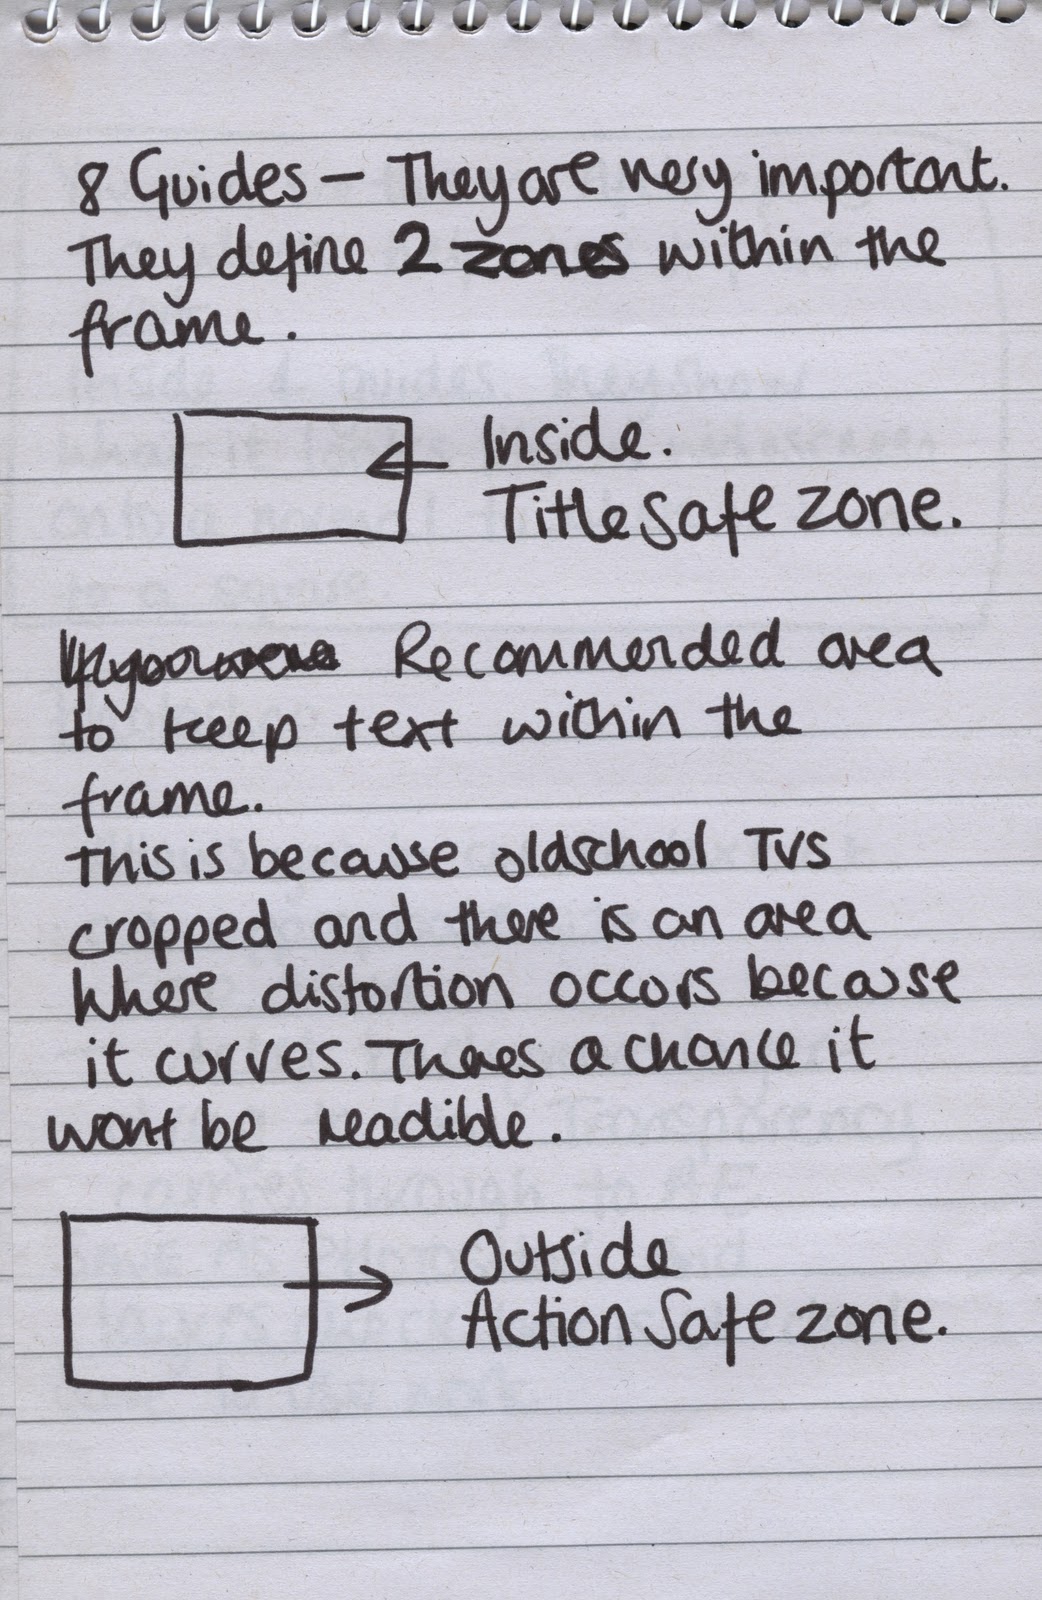 8 Guides - They are very important.
They define 2 zones within the
frame.
Inside.
Title Safe zone.
Recommended area
to keep text within the
frame.
This is because oldschool TVs
cropped and there is an area
where distortion occurs because
it curves. Theres a chance it
wont be readible.
Outside
Action Safe zone.